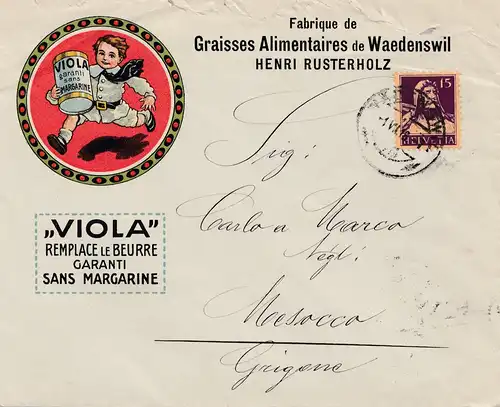 Fabrique de
Graisses Alimentaires de Waedenswil
HENRI RUSTERHOLZ
VIOLA
garanti
sans
MARGARINE
15
HELVETIA
Sig:
Carlo a Marca
Negt:
Mesocco
Grigone
„VIOLA"
REMPLACE LE BEURRE
GARANTI
SANS MARGARINE